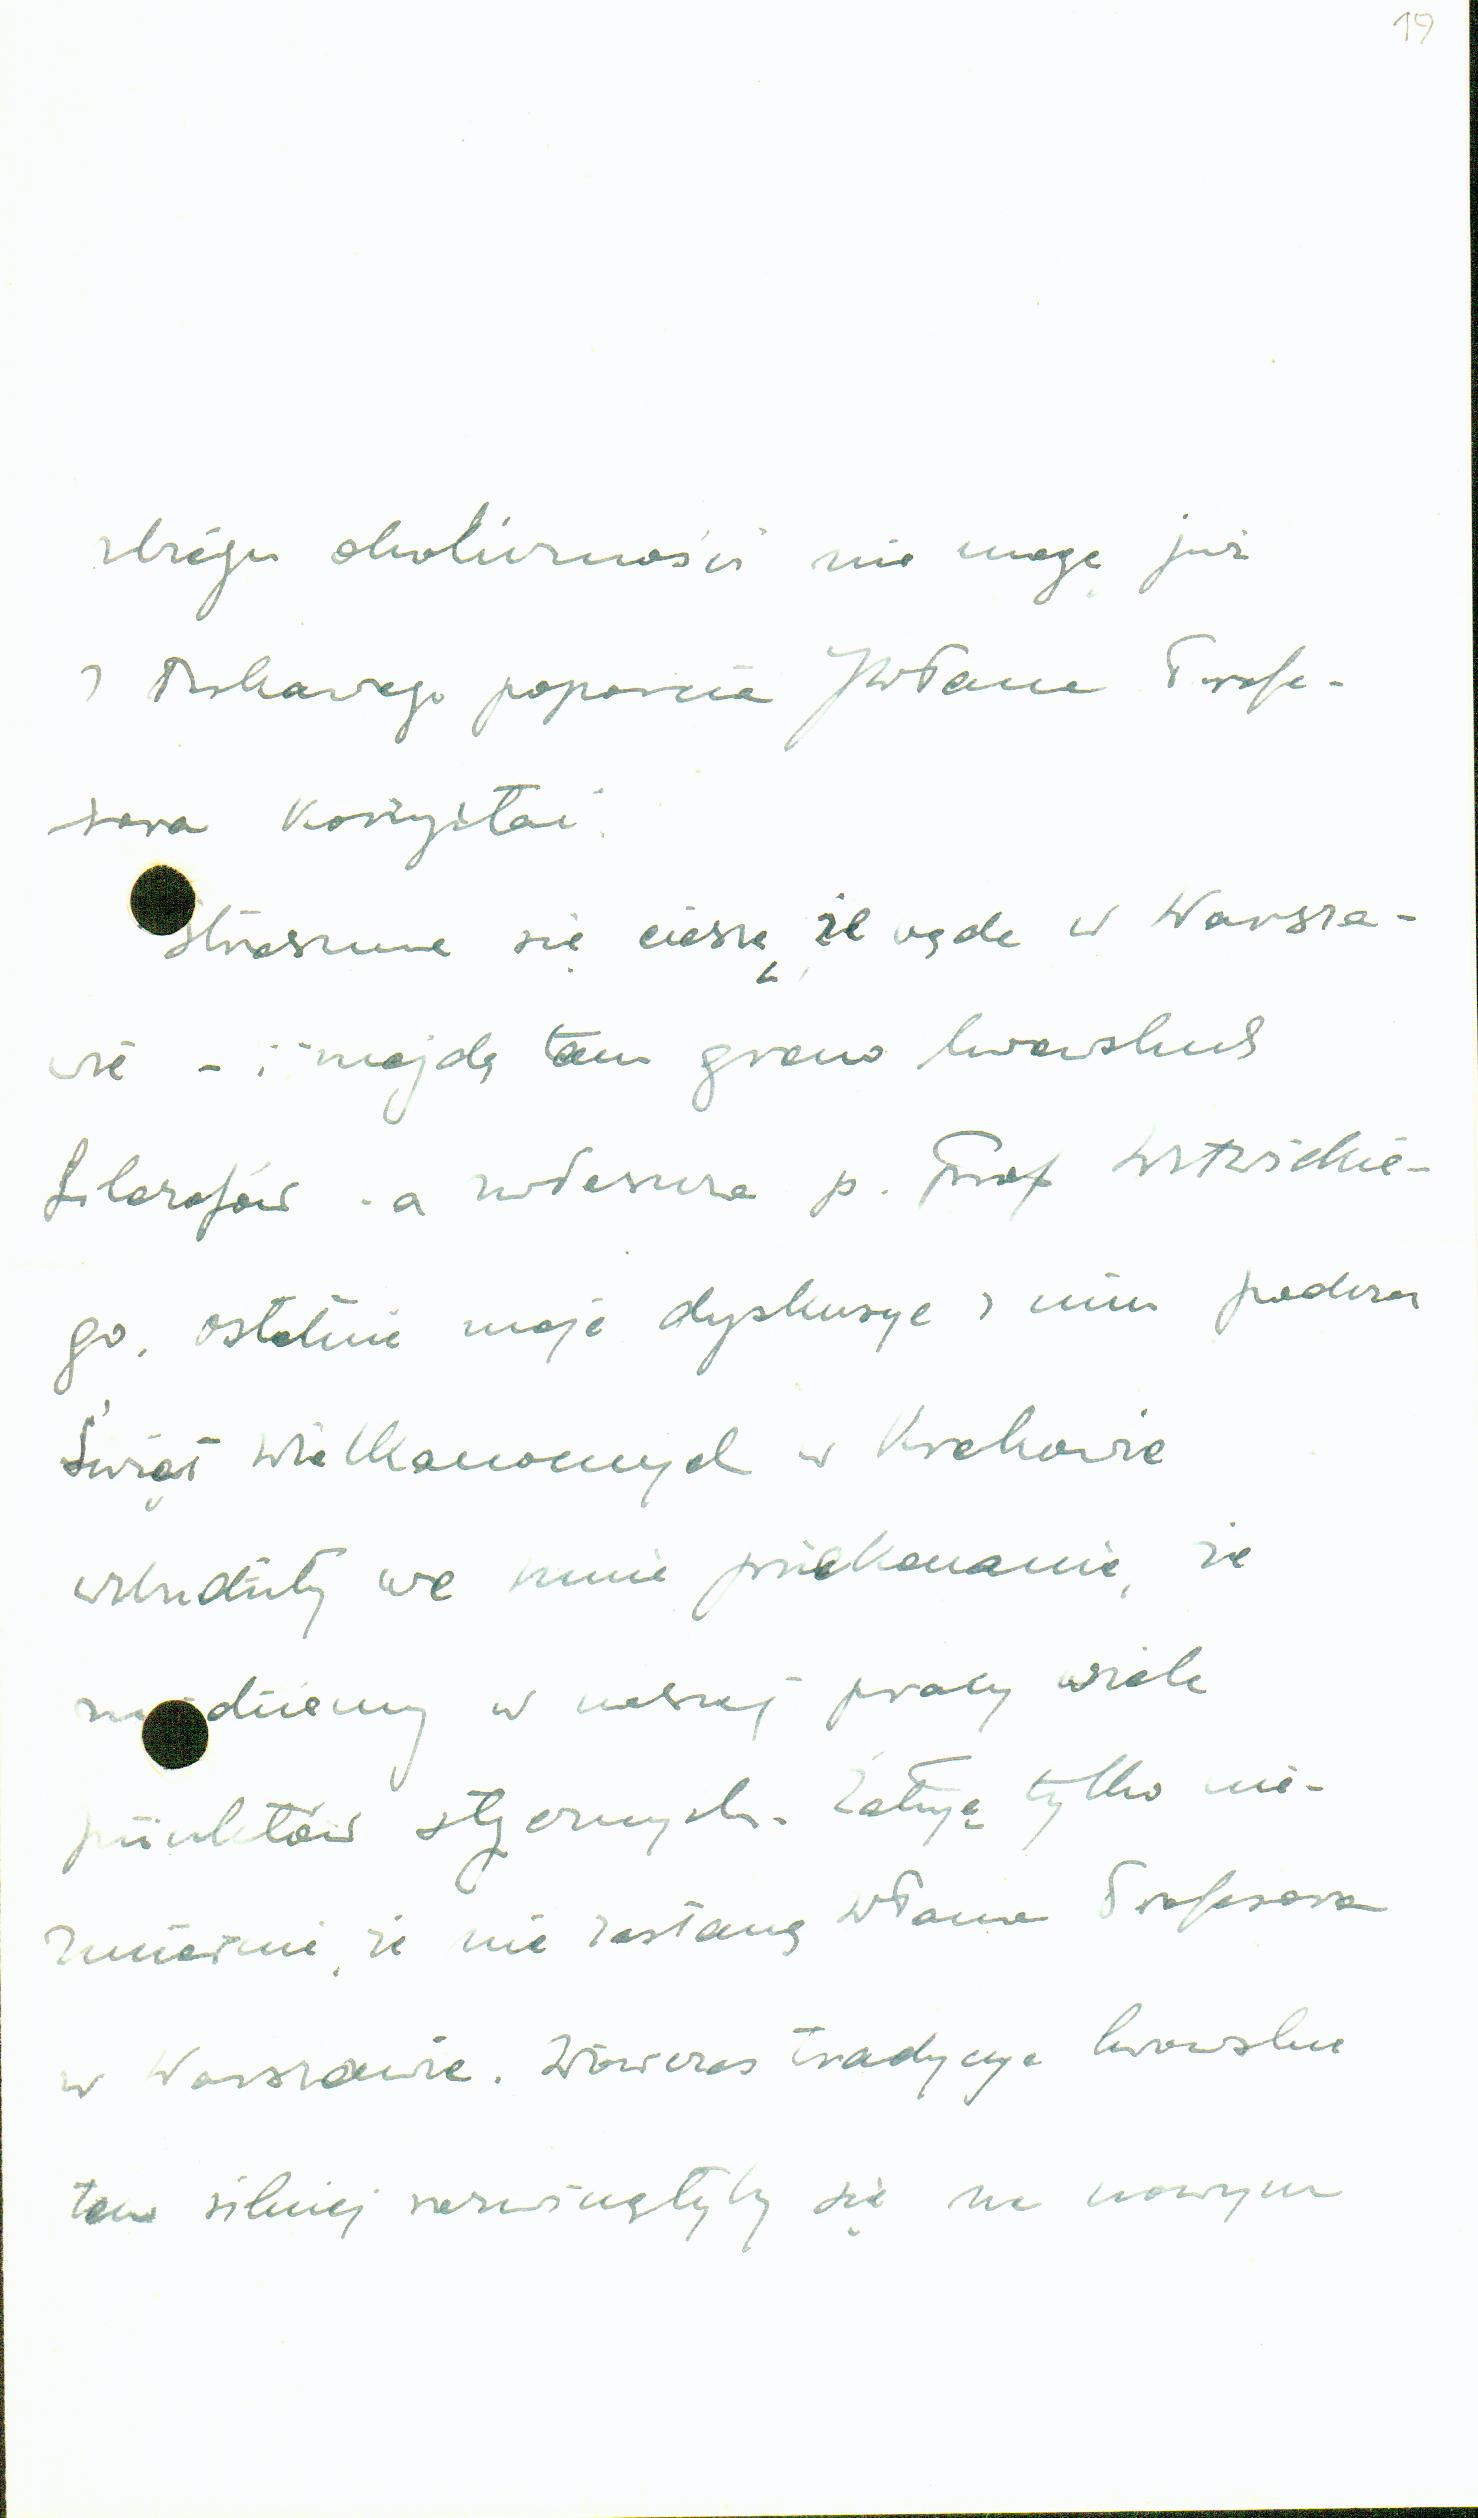 19
zbiegu okoliczności nie mogę już
z łaskawego poparcia JWPana Profe-
sora korzystać.
Strasznie się cieszę, że będę w Warsza-
wie - i znajdę tam grono lwowskich
filozofów - a zwłaszcza p. Prof
go. ostatnie moje dyskusye z nim podczas
Świąt Wielkanocnych w Krakowie
wzbudziły we mnie przekonanie, że
znajdziemy w naszej pracy wiele
punktów stycznych. Żałuję tylko nie-
zmiernie, że nie zastanę WPana Profesora
w Warszawie. Wówczas tradycye lwowskie
tem silniej rozwinęłyby się na nowym